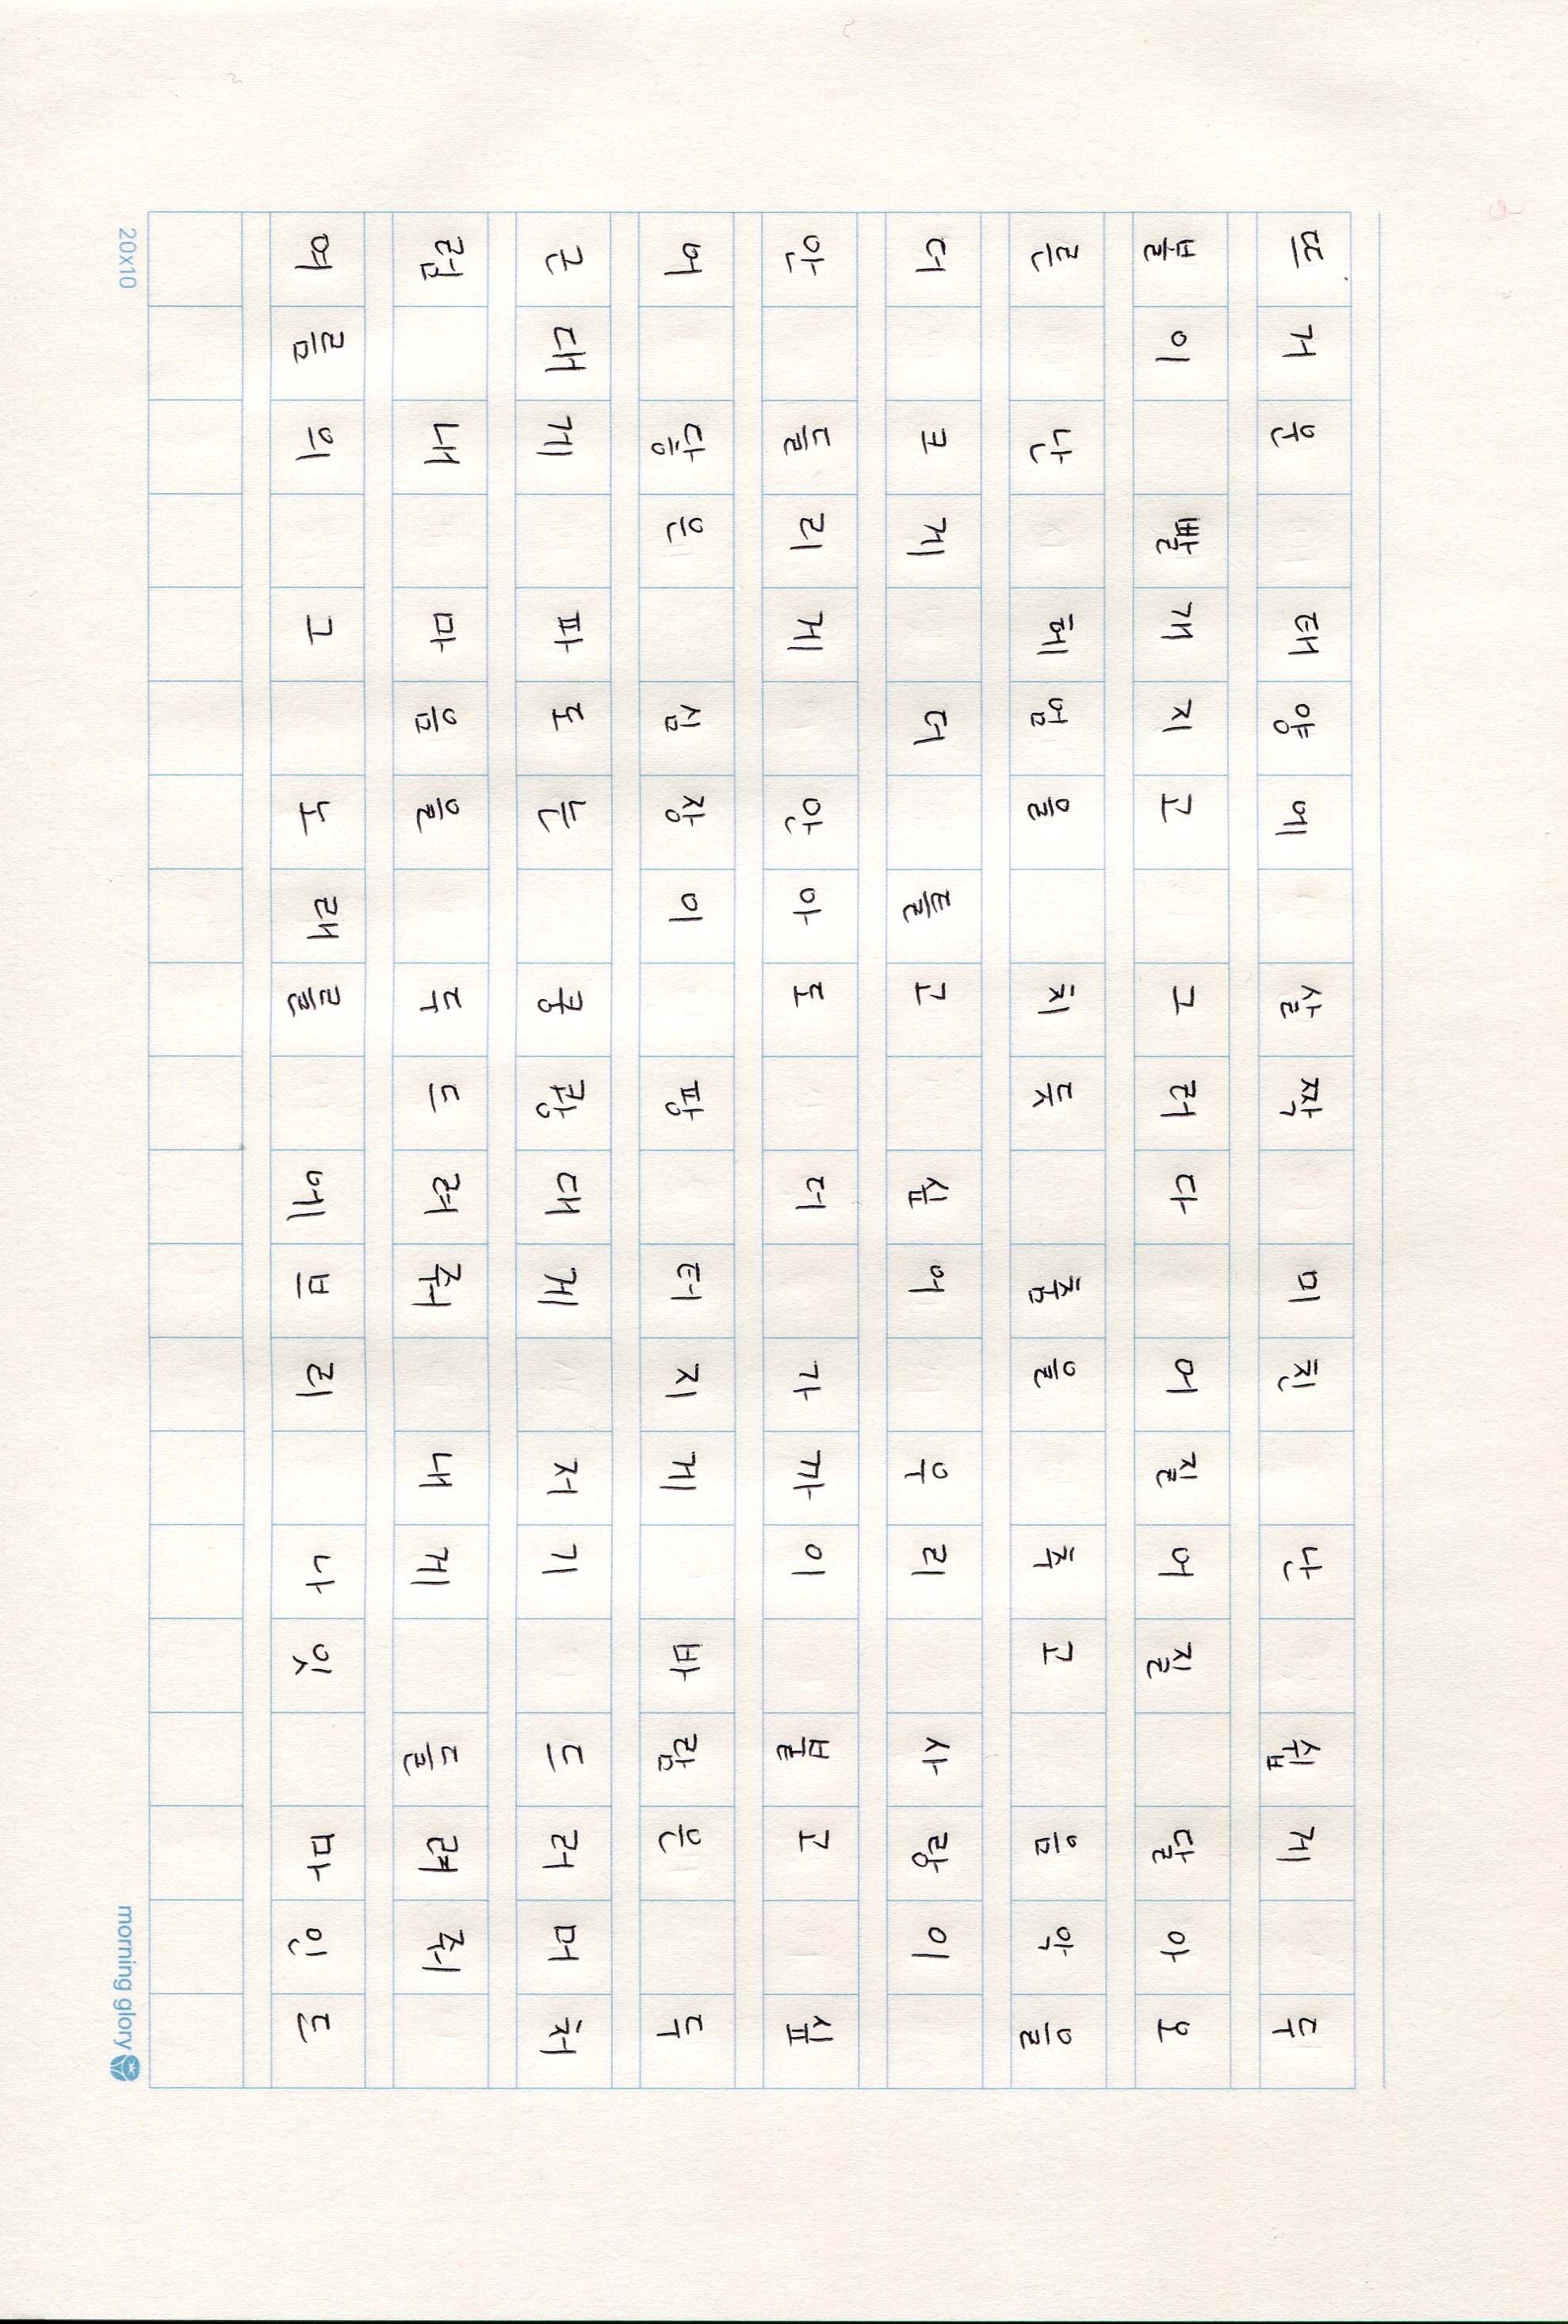 뜨거운 태양에 살짝 미친 난 쉽게 두
볼이 빨개지고 그러다 어질어질 달아오
른 난 헤엄을 치듯 춤을 추고 음악을
더 크게 더 틀고 싶어 우리 사랑이
안 들리게 안아도 더 가까이 붙고 싶
어 닿은 심장이 팡 터지게 바람은 두
근대게 파도는 쿵쾅대게 저기 드러머처
럼 내 마음을 두드려줘 내게 들려줘
여름의 그 노래를 에브리 나잇 마인드
20x10 morning glory